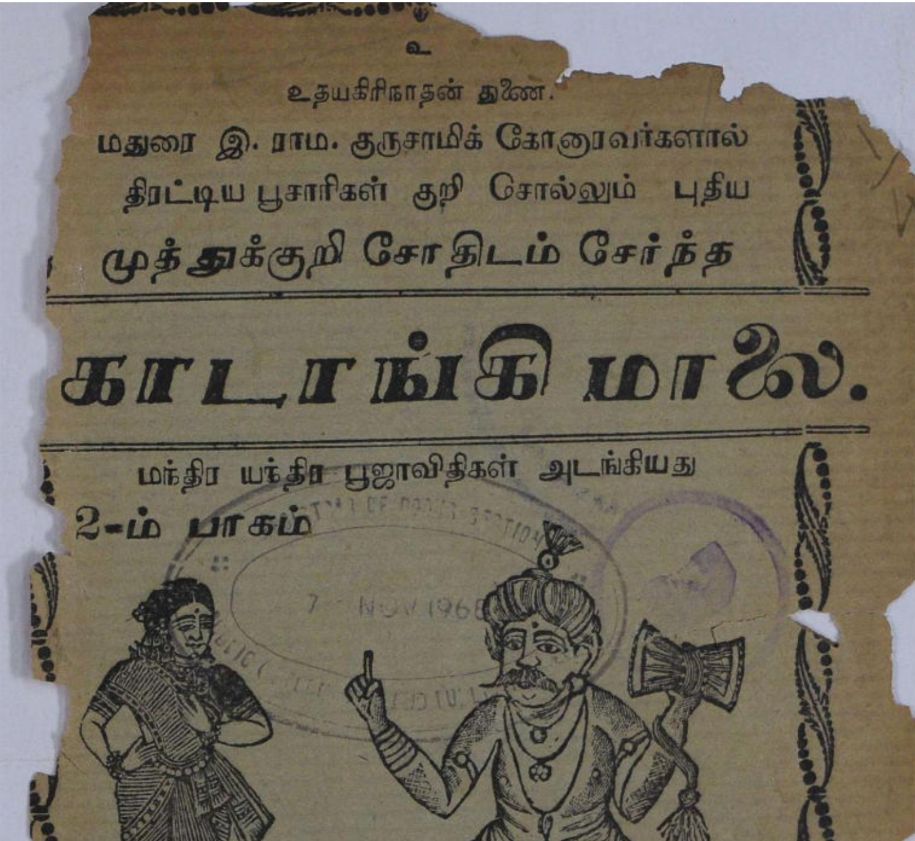 உ
உதயகிரிநாதன் துணை.
மதுரை இ. ராம. குருசாமிக் கோனாரவர்களால்
திரட்டிய பூசாரிகள் குறி சொல்லும் புதிய
முத்துக்குறி சோதிடம் சேர்ந்த
காடாங்கி மாலை.
மந்திர யந்திர பூஜாவிதிகள் அடங்கியது
2-ம் பாகம்
7 NOV 1968